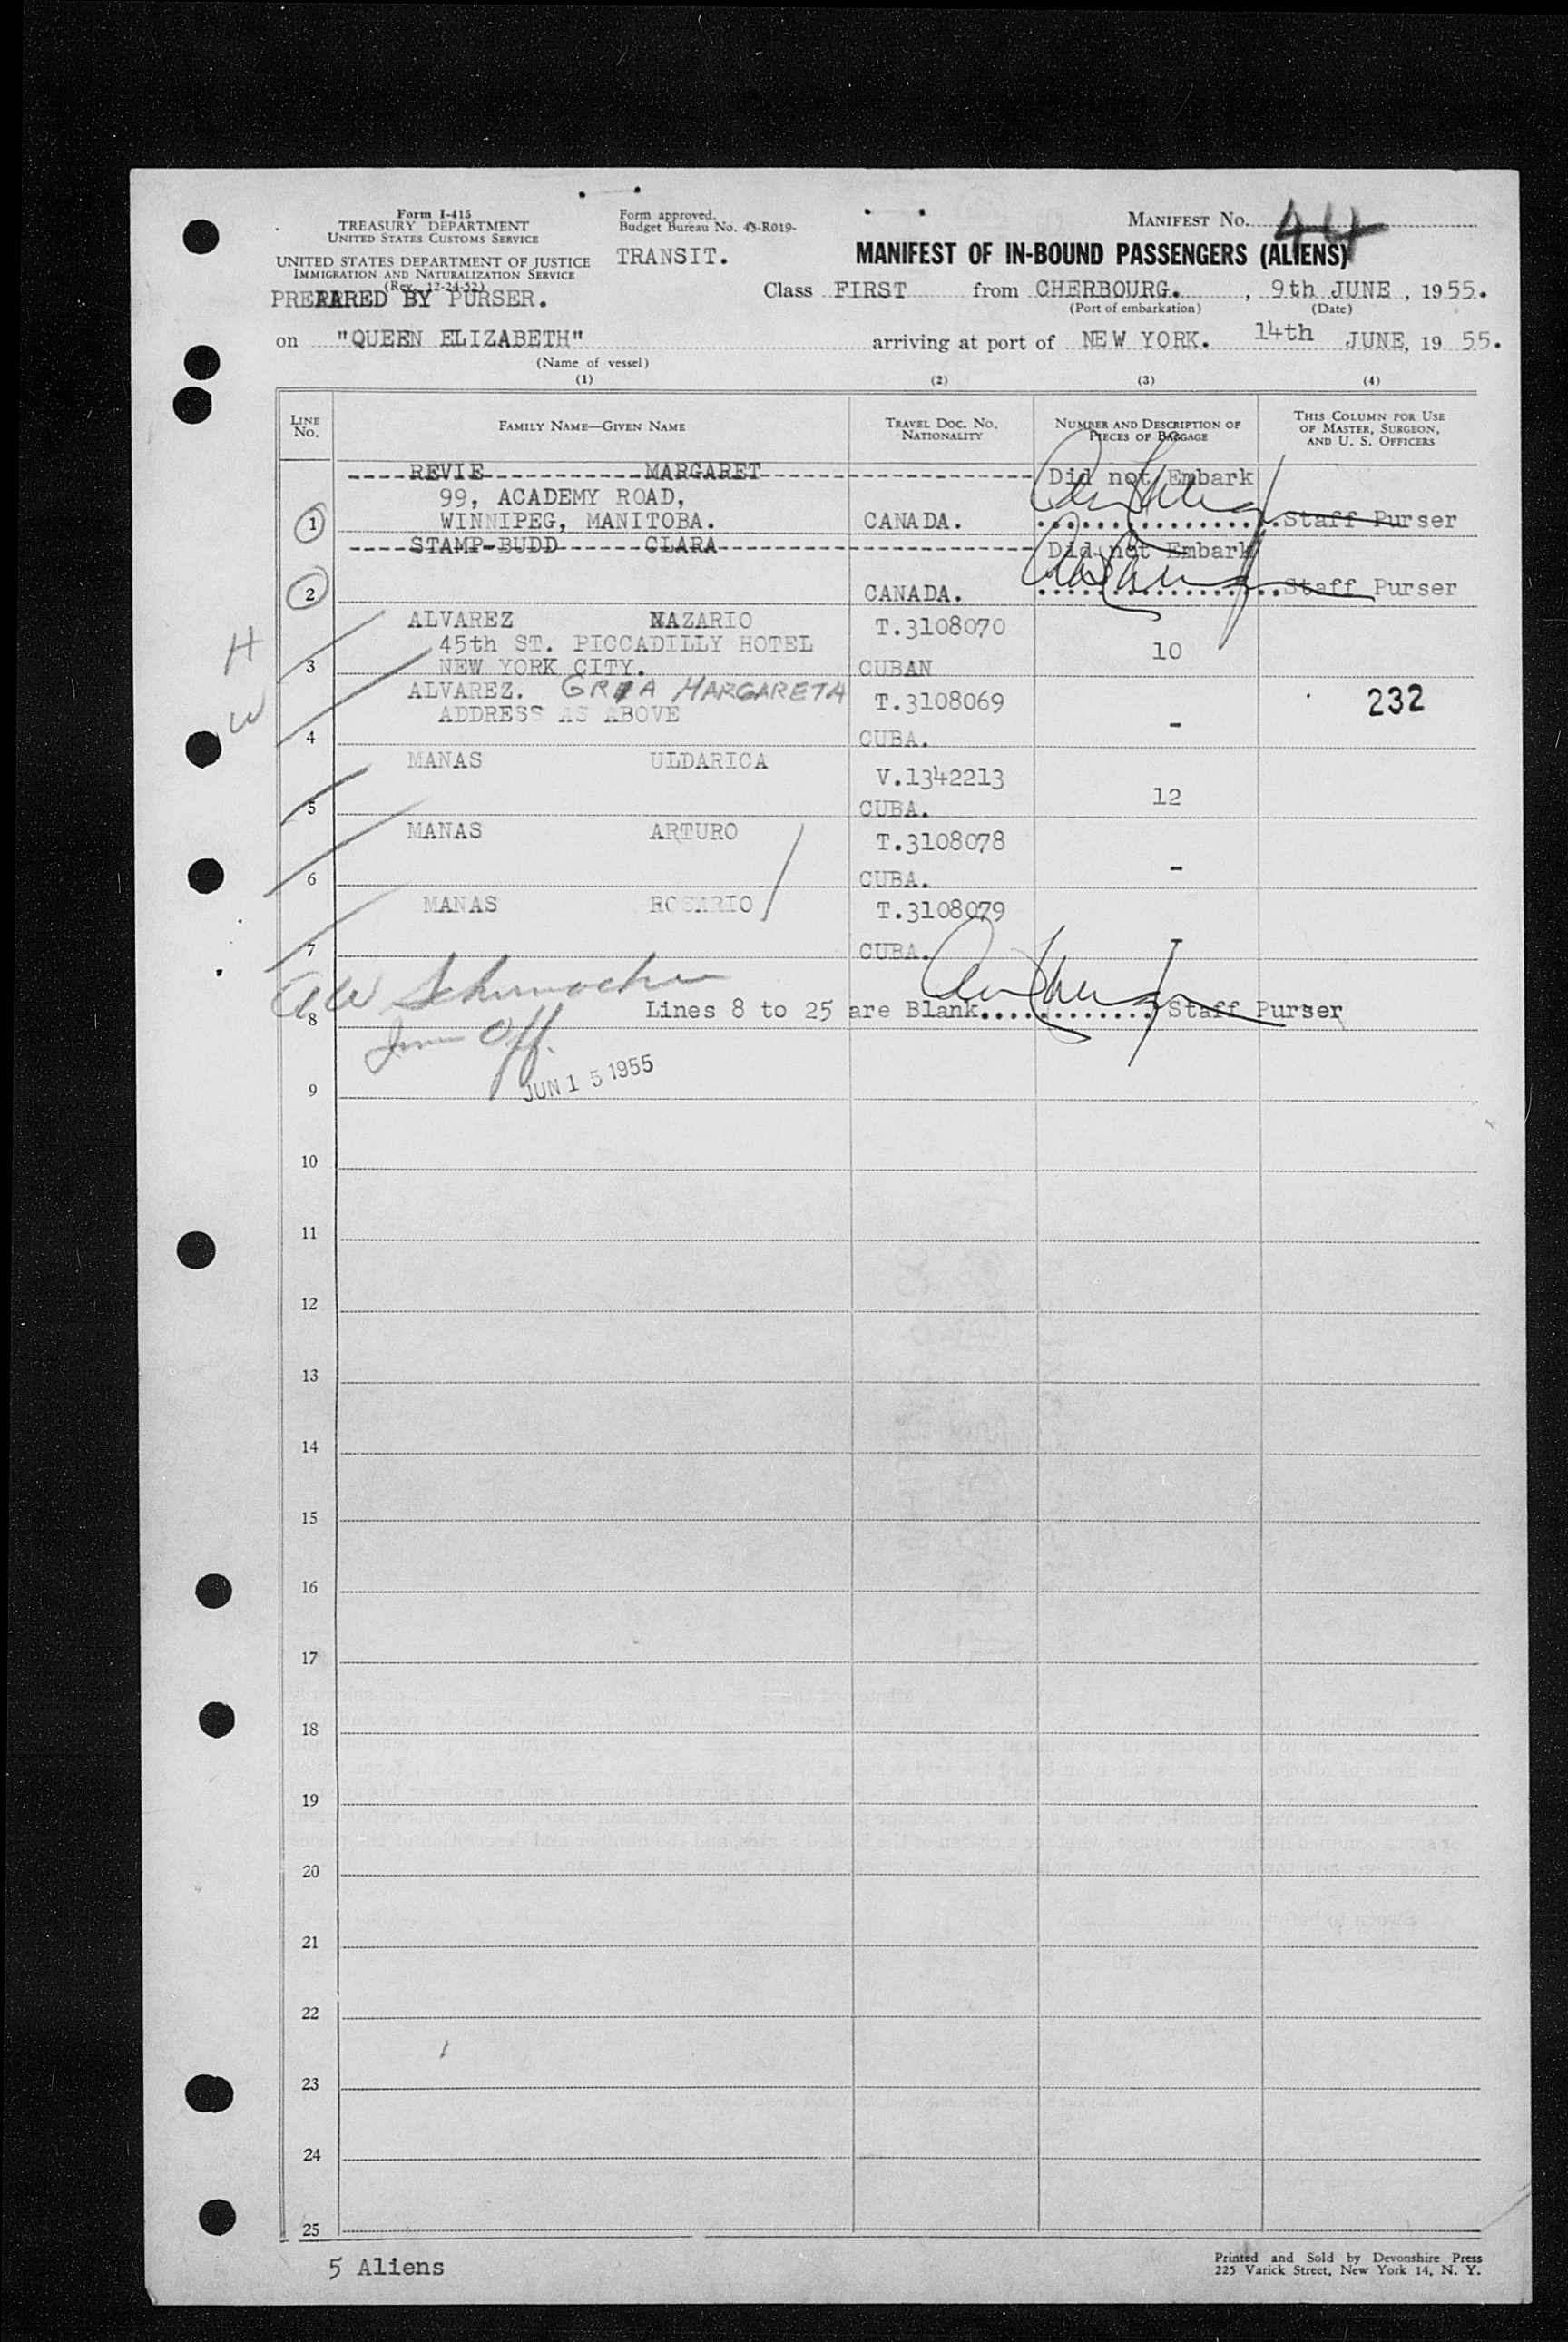 Form I-415
TREASURY DEPARTMENT
UNITED STATES CUSTOMS SERVICE
UNITED STATES DEPARTMENT OF JUSTICE
IMMIGRATION AND NATURALIZATION SERVICE
(Rev. 12-24-52)
PREPARED BY PURSER.
Form approved.
Budget Bureau No. 43-R019-
TRANSIT.
MANIFEST NO. 44
MANIFEST OF IN-BOUND PASSENGERS (ALIENS)
Class FIRST from CHERBOURG. , 9th JUNE , 1955.
(Port of embarkation) (Date)
on "QUEEN ELIZABETH" arriving at port of NEW YORK. 14th JUNE, 19 55.
(Name of vessel)
(1) (2) (3) (4)
LINE NO. FAMILY NAME—GIVEN NAME TRAVEL DOC. NO. NATIONALITY NUMBER AND DESCRIPTION OF PIECES OF BAGGAGE THIS COLUMN FOR USE OF MASTER, SURGEON, AND U. S. OFFICERS
----REVIE-----------MARGARET------------------ Did not Embark
99, ACADEMY ROAD,
1 WINNIPEG, MANITOBA. CANADA. ................Staff Purser
----STAMP-BUDD------CLARA--------------------- Did not Embark
2 CANADA. ................Staff Purser
ALVAREZ NAZARIO T.3108070
H 45th ST. PICCADILLY HOTEL 10
3 NEW YORK CITY. CUBAN
ALVAREZ. MARGARETA T.3108069 232
W ADDRESS AS ABOVE -
4 CUBA.
MANAS ULDARICA V.1342213
5 CUBA. 12
MANAS ARTURO T.3108078
6 CUBA. -
MANAS ROSARIO T.3108079
7 CUBA. -
Schumacher
8 Lines 8 to 25 are Blank.............Staff Purser
Imm Off.
JUN 15 1955
9
10
11
12
13
14
15
16
17
18
19
20
21
22
23
24
25
5 Aliens
Printed and Sold by Devonshire Press
225 Varick Street, New York 14, N. Y.